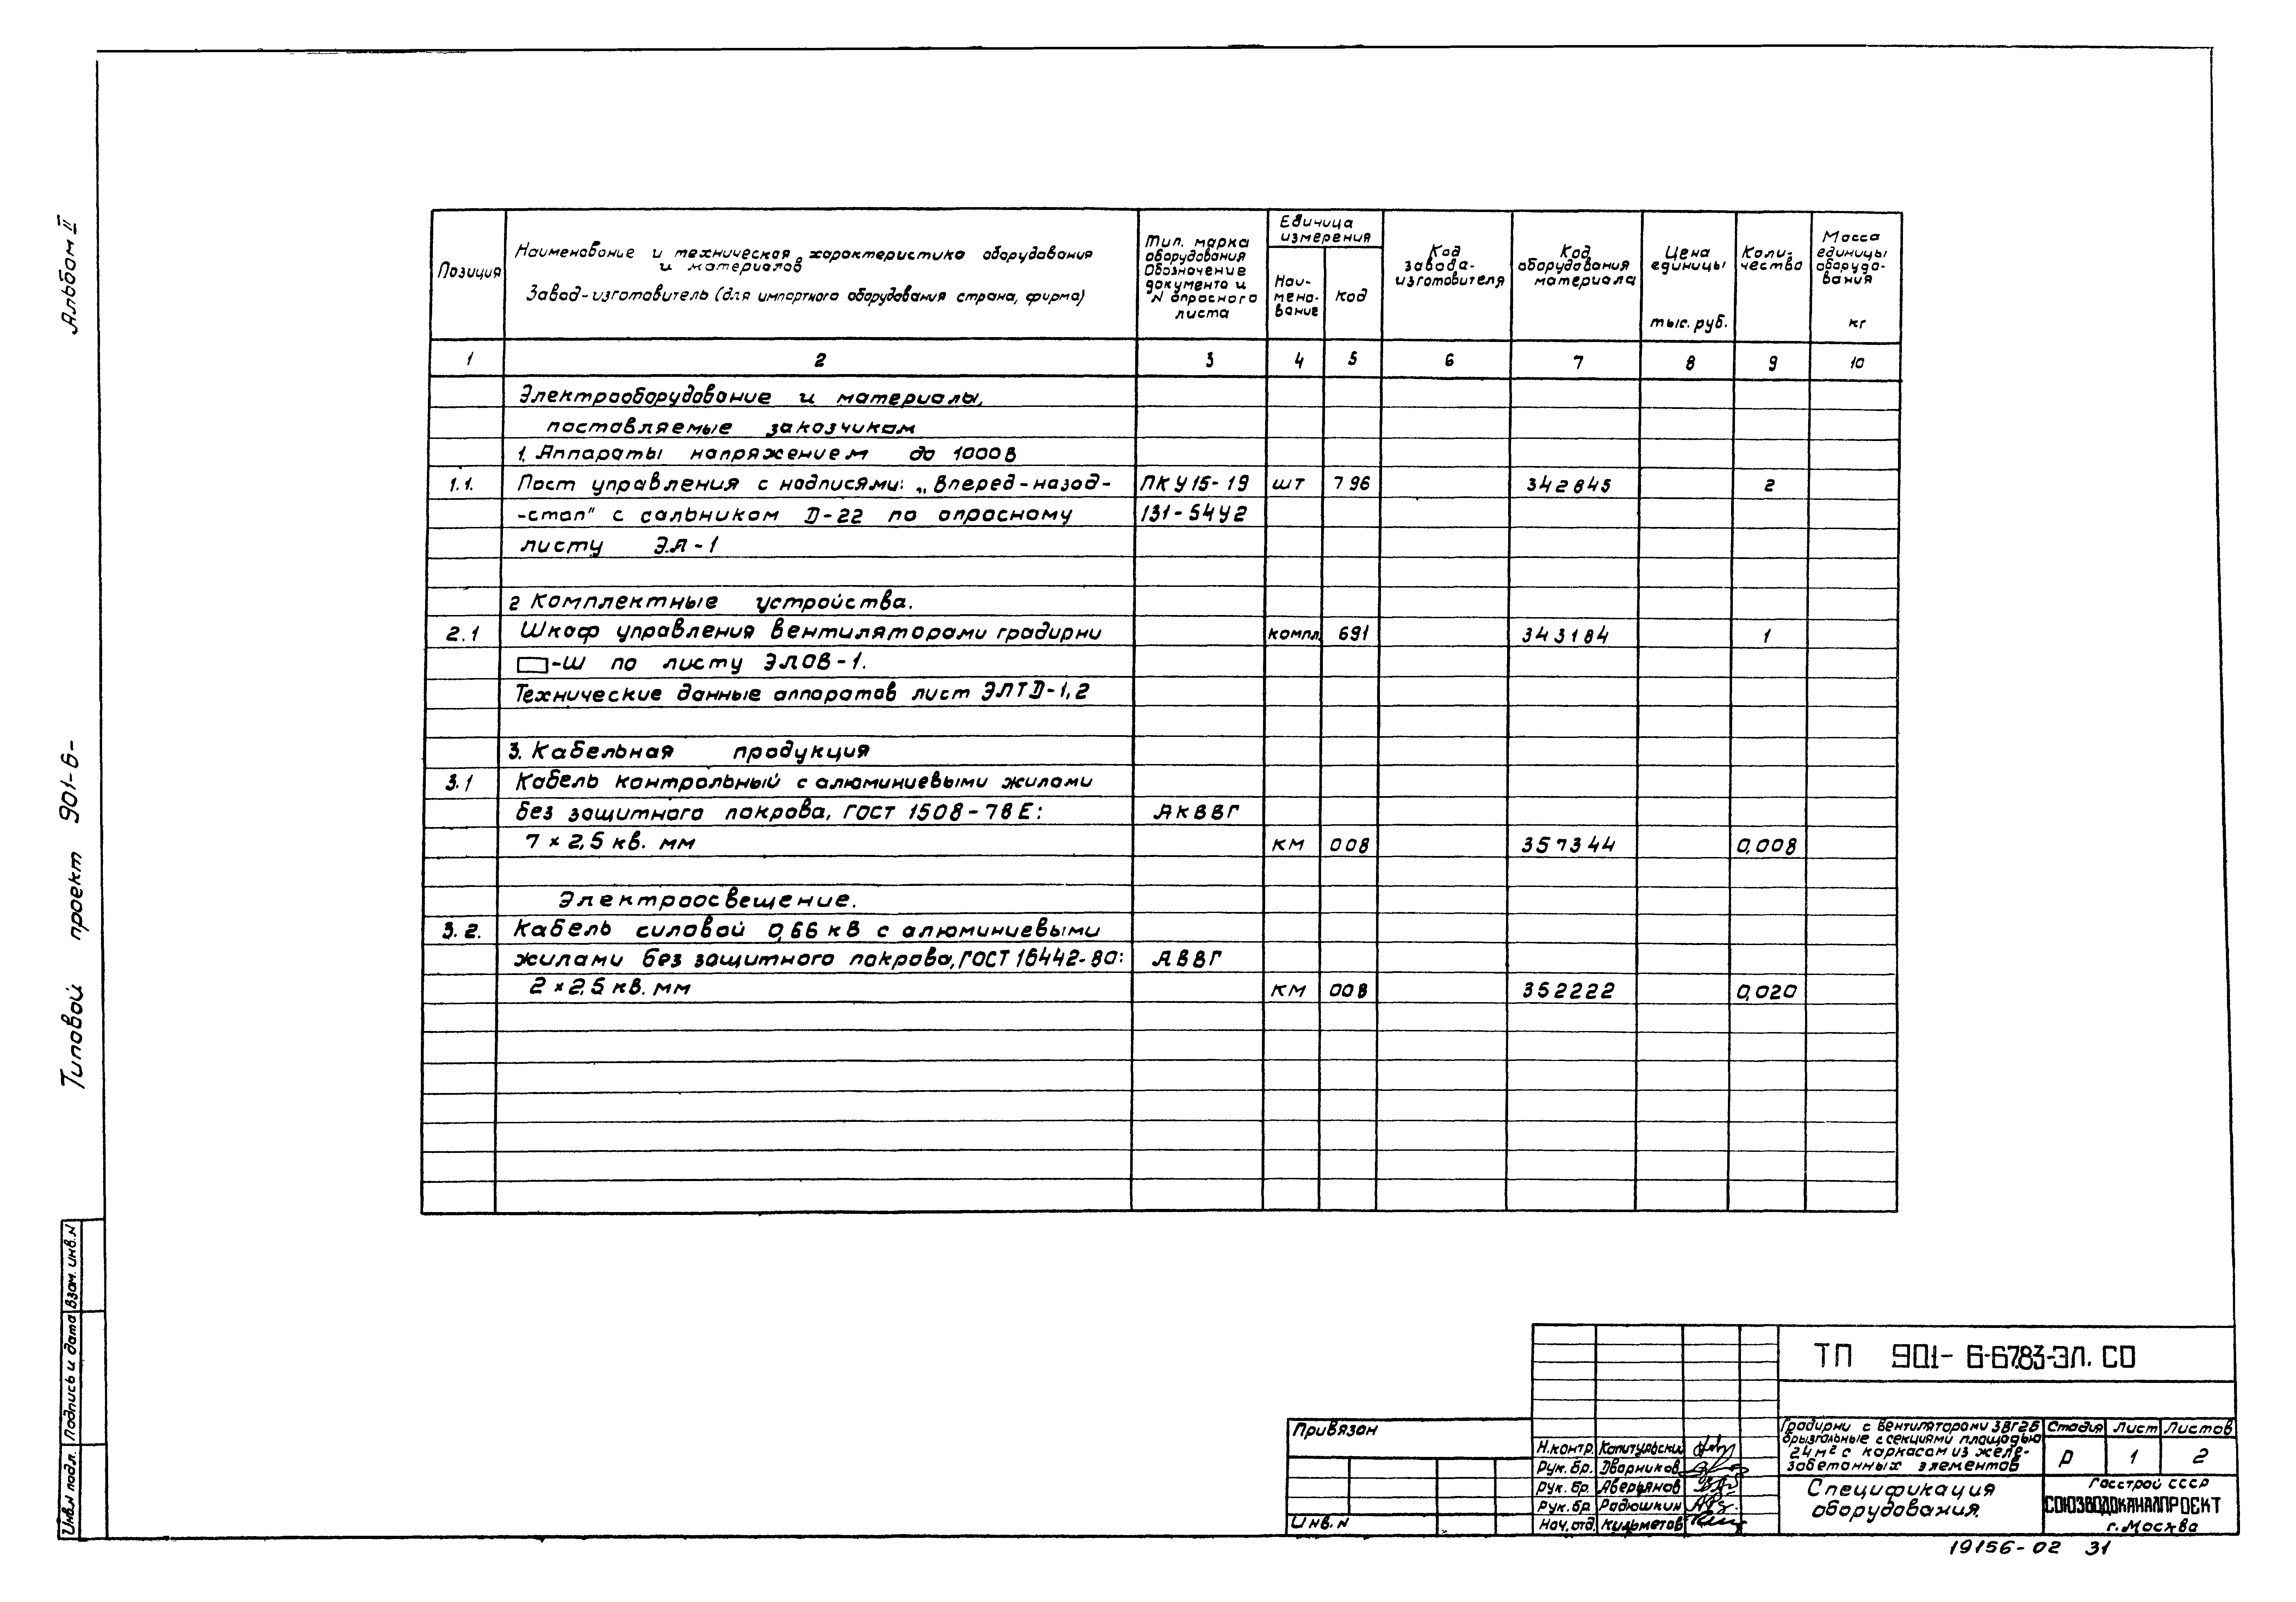 Альбом II
Типовой проект 901-6-
Позиция
Наименование и техническая характеристика оборудования
и материалов
Завод-изготовитель (для импортного оборудования страна, фирма)
Тип, марка
оборудования
Обозначение
документа и
N опросного
листа
Единица
измерения
Наи-
мено-
вание
Код
Код
завода-
изготовителя
Код
оборудования
материала
Цена
единицы
тыс. руб.
Коли-
чество
Масса
единицы
оборудо-
вания
кг
1 2 3 4 5 6 7 8 9 10
Электрооборудование и материалы,
поставляемые заказчиком
1. Аппараты напряжением до 1000В
1.1. Пост управления с надписями: „Вперед-назад- ПКУ15-19 шт 796 342845 2
-стоп" с сальником D-22 по опросному 131-54У2
листу ЭЛ-1
2 Комплектные устройства.
2.1 Шкаф управления вентиляторами градирни компл. 691 343184 1
-Ш по листу ЭЛОВ-1.
Технические данные аппаратов лист ЭЛТД-1,2
3. Кабельная продукция
3.1 Кабель контрольный с алюминиевыми жилами
без защитного покрова, ГОСТ 1508-78Е: АКВВГ
7 × 2,5 кв. мм км 008 357344 0,008
Электроосвещение.
3.2. Кабель силовой 0,66 кВ с алюминиевыми
жилами без защитного покрова, ГОСТ 16442-80: АВВГ
2 × 2,5 кв. мм км 008 352222 0,020
Инв.N подл. Подпись и дата Взам. инв.N
Привязан
Инв. N
Н.контр. Капитульский
Рук. бр. Дворников
Рук. бр. Аверьянов
Рук. бр. Радюшкин
Нач. отд. Кильметов
ТП 901-6-67.83-ЭЛ. СО
Градирни с вентиляторами 3ВГ25
брызгальные с секциями площадью
24 м² с каркасом из желе-
зобетонных элементов
Стадия Лист Листов
Р 1 2
Спецификация
оборудования.
Госстрой СССР
СОЮЗВОДОКАНАЛПРОЕКТ
г. Москва
19156-02 31